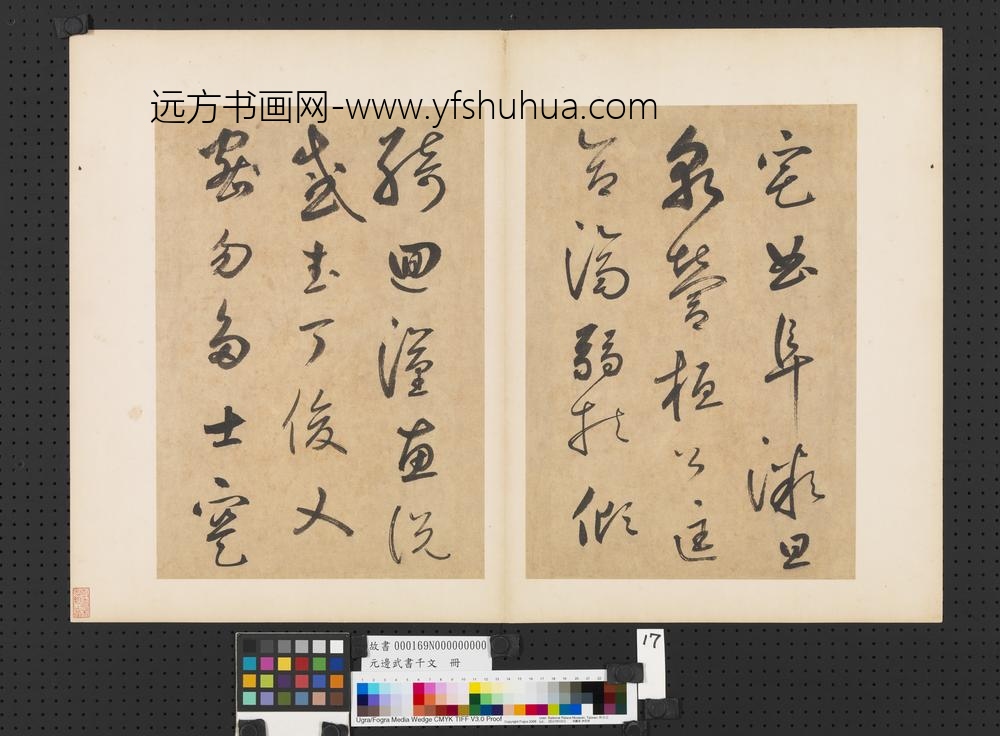 远方书画网-www.yfshuhua.com
宅曲阜微旦
孰營桓公匡
合濟弱扶傾
綺迴漢惠說
感武丁俊乂
密勿多士寔
故書 000169N000000000
元邊武書千文 冊
17
Ugra/Fogra Media Wedge CMYK TIFF V3.0 Proof